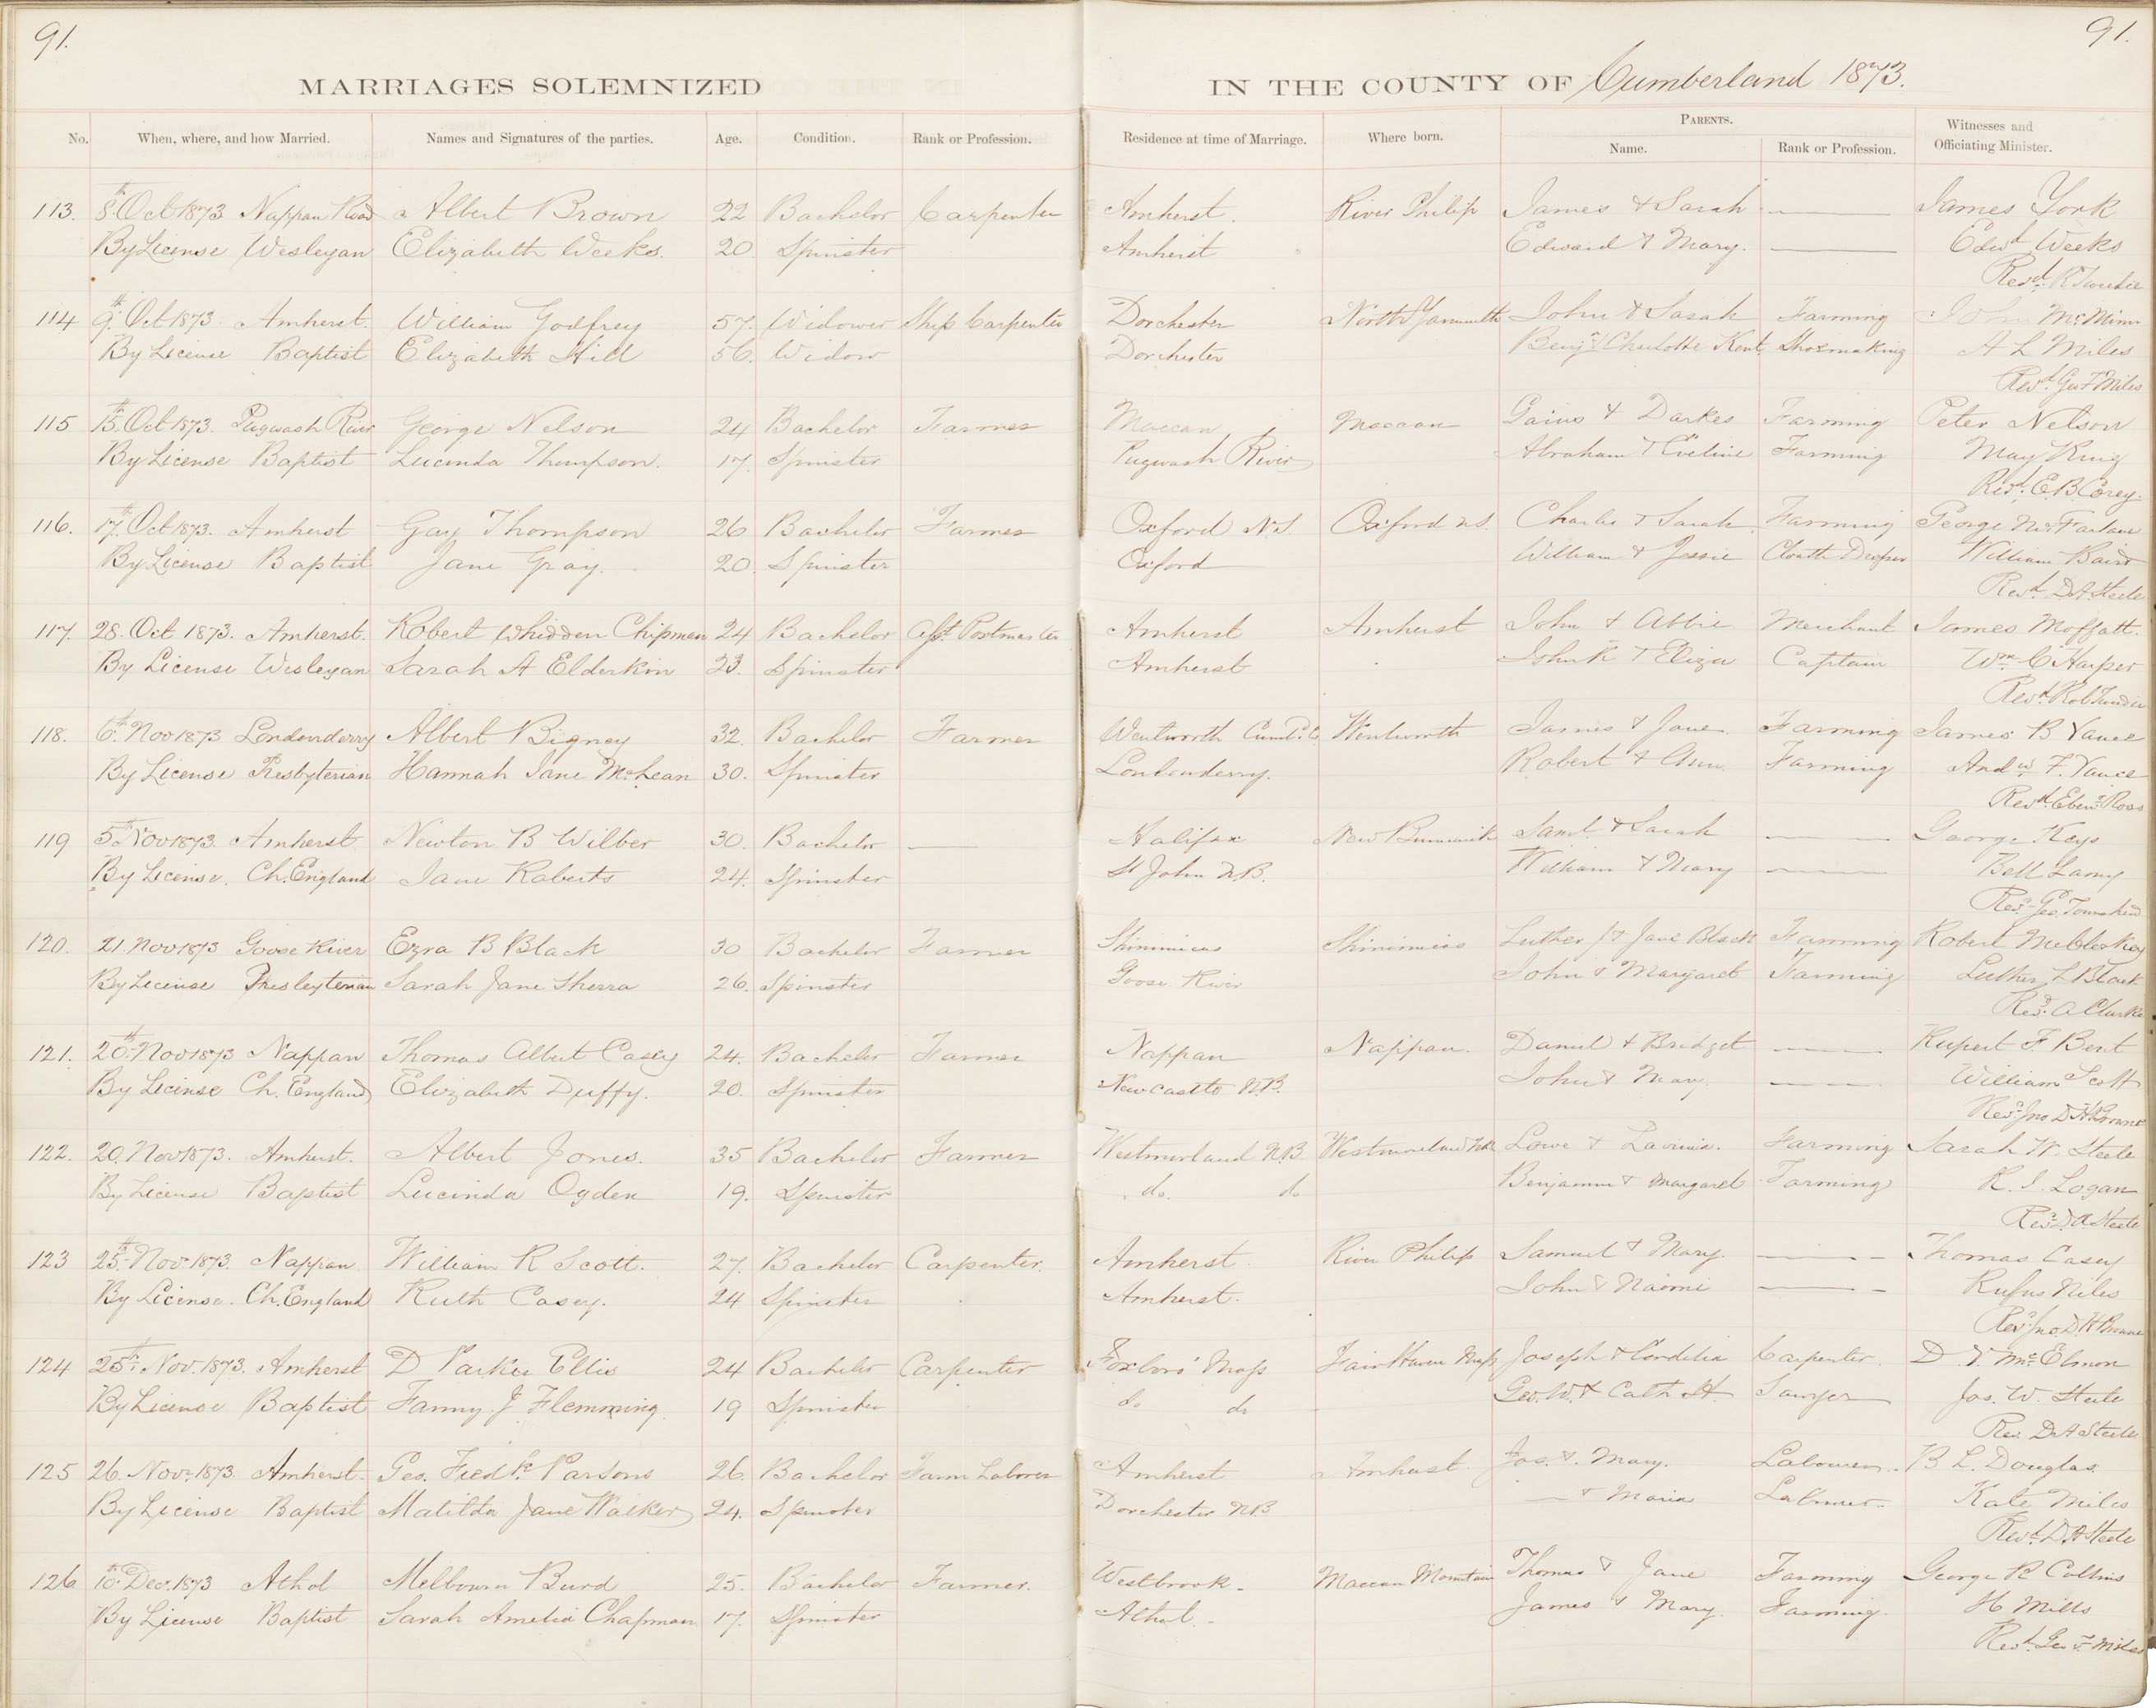 91.
91.
MARRIAGES SOLEMNIZED IN THE COUNTY OF Cumberland 1873.
No. When, where, and how Married. Names and Signatures of the parties. Age. Condition. Rank or Profession. Residence at time of Marriage. Where born. PARENTS. Name. Rank or Profession. Witnesses and Officiating Minister.
113. 8th Oct 1873 Nappan Road Albert Brown 22 Bachelor Carpenter Amherst. River Philip James & Sarah James York
By License Wesleyan Elizabeth Weeks. 20. Spinster Amherst Edward & Mary. Edwd Weeks
Revd. R
114 9th Oct 1873. Amherst. William Godfrey 57. Widower Ship Carpenter Dorchester North Yarmouth John & Sarah Farming John McMinn
By License Baptist Elizabeth Hill 56. Widow Dorchester Benjn & Charlotte Kent Shoemaking A L Miles
Revd. Geo F Miles
115 15th Oct 1873. Pugwash River George Nelson 24 Bachelor Farmer Maccan Maccan Gaius & Darkes Farming Peter Nelson
By License Baptist Lucinda Thompson. 17. Spinster Pugwash River Abraham & Eveline Farming May King
Revd. E. B. Corey.
116. 17th Oct 1873. Amherst Gay Thompson 26 Bachelor Farmer Oxford N.S. Oxford N.S. Charles & Sarah Farming George McFarlane
By License Baptist Jane Gray. 20. Spinster Oxford William & Jessie Cloath Dresser William Baird
Revd. D. A. Steele
117. 28. Oct 1873. Amherst. Robert Whidden Chipman 24 Bachelor Asst. Postmaster Amherst Amherst John & Abbie Merchant James Moffatt.
By License Wesleyan Sarah A Elderkin 23. Spinster Amherst John R & Eliza Captain Wm C Harper
Revd Rob
118. 6th Nov 1873 Londonderry Albert Bigney 32. Bachelor Farmer Wentworth Cumbd. Co Wentworth James & Jane. Farming James B Vance
By License Presbyterian Hannah Jane McLean 30. Spinster Londonderry. Robert & Ann. Farming Andw F. Vance
Revd. Ebenr Ross
119 5th Nov 1873. Amherst Newton B Wilber 30. Bachelor Halifax New Brunswick Saml & Sarah George Keys
By License. Ch. England Jane Roberts 24. Spinster St John N.B. William & Mary Bell Lamy
Revd. Geo. Townshend
120. 21. Nov 1873 Goose River Ezra B Black 30 Bachelor Farmer Shinimicas Shinimicas Luther & Jane Black Farming Robert
By License Presbyterian Sarah Jane Sherra 26. Spinster Goose River John & Margaret Farming Luther L Black
Revd. A Clarke
121. 20th Nov 1873 Nappan Thomas Albert Casey 24. Bachelor Farmer Nappan Nappan. Daniel & Bridget Rupert F. Bent
By License Ch. England Elizabeth Duffy. 20. Spinster Newcastle N.B. John & Mary William Scott
Revd. Jno D H Browne
122. 20. Nov 1873. Amherst. Albert Jones. 35 Bachelor Farmer Westmorland N.B. Westmoreland N.B. Lowe & Lavinia. Farming Sarah W. Steele
By License Baptist Lucinda Ogden 19. Spinster do. do Benjamin & Margaret Farming R. J. Logan
Revd. D. A Steele
123 25th Nov. 1873. Nappan William R Scott. 27. Bachelor Carpenter. Amherst. River Philip Samuel & Mary. Thomas Casey
By License. Ch. England Ruth Casey. 24 Spinster Amherst. John & Naomi Rufus Niles
Revd. Jno. D H Browne
124 25th Nov. 1873. Amherst D Parker Ellis 24 Bachelor Carpenter Foxboro' Mass Fair Haven Mass Joseph & Cordelia Carpenter. D V. McElmon
By License Baptist Fanny J Flemming 19 Spinster do do Geo. W. & Cath H. Sawyer Jas. W. Steele
Rev. D A Steele
125 26. Nov. 1873. Amherst. Geo. Fredk. Parsons 26. Bachelor Farm Laborer Amherst Amherst. Jas. & Mary. Labourer. B L. Douglas.
By License Baptist Matilda Jane Walker 24. Spinster Dorchester N.B & Maria Labourer. Kate Miles
Revd. D. A Steele
126. 10th Dec. 1873 Athol Melbourn Burd 25. Bachelor Farmer. Westbrook. Maccan Mountain Thomas & Jane Farming George R Collins
By License Baptist Sarah Amelia Chapman 17. Spinster Athol. James & Mary. Farming. H Mills
Revd. Geo F. Miles